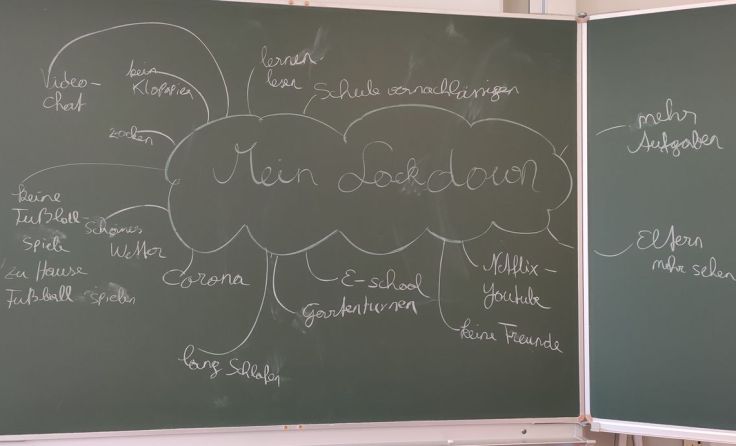 Mein Lockdown
Video-
chat
kein
Klopapier
lernen
lesen
Schule vernachlässigen
zocken
keine
Fußball-
spiele
zu Hause
Fußball spielen
Schönes
Wetter
Corona
lang Schlafen
E-school
Gartenturnen
Netflix -
Youtube
keine Freunde
mehr
Aufgaben
Eltern
mehr sehen